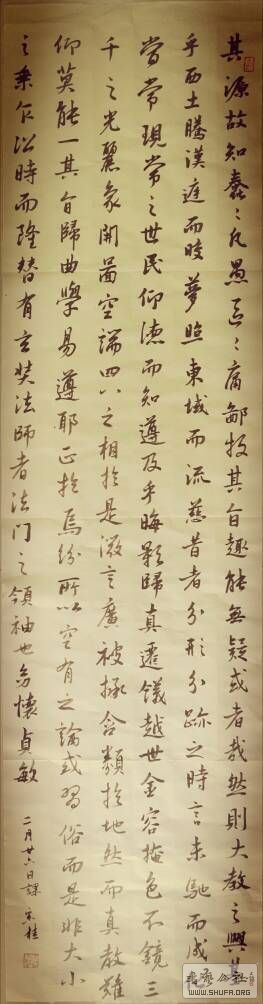 其源故知蠢々凡愚區々庸鄙投其旨趣能無疑或者哉然則大教之興基
乎西土騰漢庭而晈夢照東域而流慈昔者分形分跡之時言未馳而成
當常現常之世民仰德而知遵及乎晦影歸真遷儀越世金容掩色不鏡三
千之光麗象開圖空端四八之相於是微言廣被拯含類於地然而真教難
仰莫能一其旨歸曲學易遵耶正於焉紛所以空有之論或習俗而是非大小
之乘乍沿時而隆替有玄奘法師者法門之領袖也幼懷貞敏
二月廿六日課 桂
WWW.SHUFA.ORG